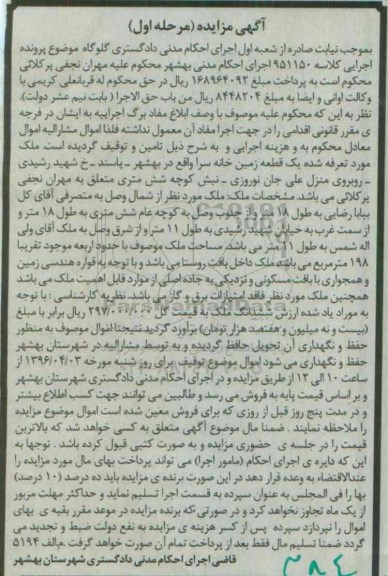 آگهی مزایده (مرحله اول)
بموجب نیابت صادره از شعبه اول اجرای احکام مدنی دادگستری گلوگاه موضوع پرونده
اجرایی کلاسه ۹۵۱۱۵۰ اجرای احکام مدنی بهشهر محکوم علیه مهران نجفی پرکلائی
محکوم است به پرداخت مبلغ ۱۶۸۹۶۴۰۹۲ ریال در حق محکوم له قربانعلی کریمی با
وکالت اوانی و ایضا به مبلغ ۸۴۴۸۲۰۴ ریال من باب حق الاجرا ( بابت نیم عشر دولت).
نظر به این که محکوم علیه موصوف با وصف ابلاغ مفاد برگ اجراییه به ایشان در فرجه
ی مقرر قانونی اقدامی را در جهت اجرا مفاد آن معمول نداشته فلذا اموال مشارالیه اموال
معادل محکوم به و هزینه اجرایی و به شرح ذیل تامین و توقیف گردیده است. ملک
مورد تعرفه شده یک قطعه زمین خانه سرا واقع در بهشهر ـ پاسند ـ خ شهید رشیدی
ـ روبروی منزل علی جان نوروزی ـ نبش کوچه شش متری متعلق به مهران نجفی
پرکلائی می باشد. مشخصات ملک ملک مورد نظر از شمال وصل به متصرفی آقای گل
بابا رضایی به طول ۱۸ متر و از جنوب وصل به کوچه عام شش متری به طول ۱۸ متر و
از سمت غرب به خیابان شهید رشیدی به طول ۱۱ متر و از شرق وصل به ملک آقای ولی
اله شمس به طول ۱۱ متر می باشد. مساحت ملک موصوف با حدود اربعه موجود تقریبا
۱۹۸ مترمربع می باشد ملک داخل بافت روستا می باشد و با توجه به قواره هندسی زمین
و همجواری با بافت مسکونی و نزدیکی به جاده اصلی از موارد قابل اهمیت ملک می باشد
همچنین ملک مورد نظر فاقد امتیازات برق و گاز می باشد. نظریه کارشناسی : با توجه
به موراد یاد شده ارزش ششدانگ ملک به قیمت کل ریال برابر با مبلغ
(بیست و نه میلیون و هفتصد هزار تومان) برآورد گردید نتیجتا اموال موصوف به منظور
حفظ و نگهداری آن تحویل حافظ گردیده و به توسط مشارالیه در شهرستان بهشهر
حفظ و نگهداری می شود اموال موضوع توقیف برای روز شنبه مورخه ۱۳۹۶/۰۴/۰۳ از
ساعت ۱۰ الی ۱۲ از طریق مزایده و در اجرای احکام مدنی دادگستری شهرستان بهشهر
و بر اساس قیمت پایه به فروش می رسد و طالبین می توانند جهت کسب اطلاع بیشتر
و در مدت پنج روز قبل از روزی که برای فروش معین شده است اموال موضوع مزایده
را ملاحظه نمایند . ضمنا مال موضوع آگهی متعلق به کسی خواهد شد که بالاترین
قیمت را در جلسه ی حضوری مزایده و به صورت کتبی قبول کرده باشد . توجها به
این که دایره ی اجرای احکام (مامور اجرا) می تواند پرداخت بهای مال مورد مزایده را
عندالاقتضاء به وعده قرار دهد در این صورت برنده ی مزایده باید ده درصد (۱۰ درصد)
بها را فی المجلس به عنوان سپرده به قسمت اجرا تسلیم نماید و حداکثر مهلت مزبور
از یک ماه تجاوز نخواهد کرد و در صورتی که برنده مزایده در موعد مقرر بقیه ی بهای
اموال را نپردازد سپرده پس از کسر هزینه ی مزایده به نفع دولت ضبط و تجدید می
گردد ضمنا تسلیم مال فقط بعد از پرداخت تمام آن صورت خواهد گرفت .م/الف ۵۱۹۴
قاضی اجرای احکام مدنی دادگستری شهرستان بهشهر